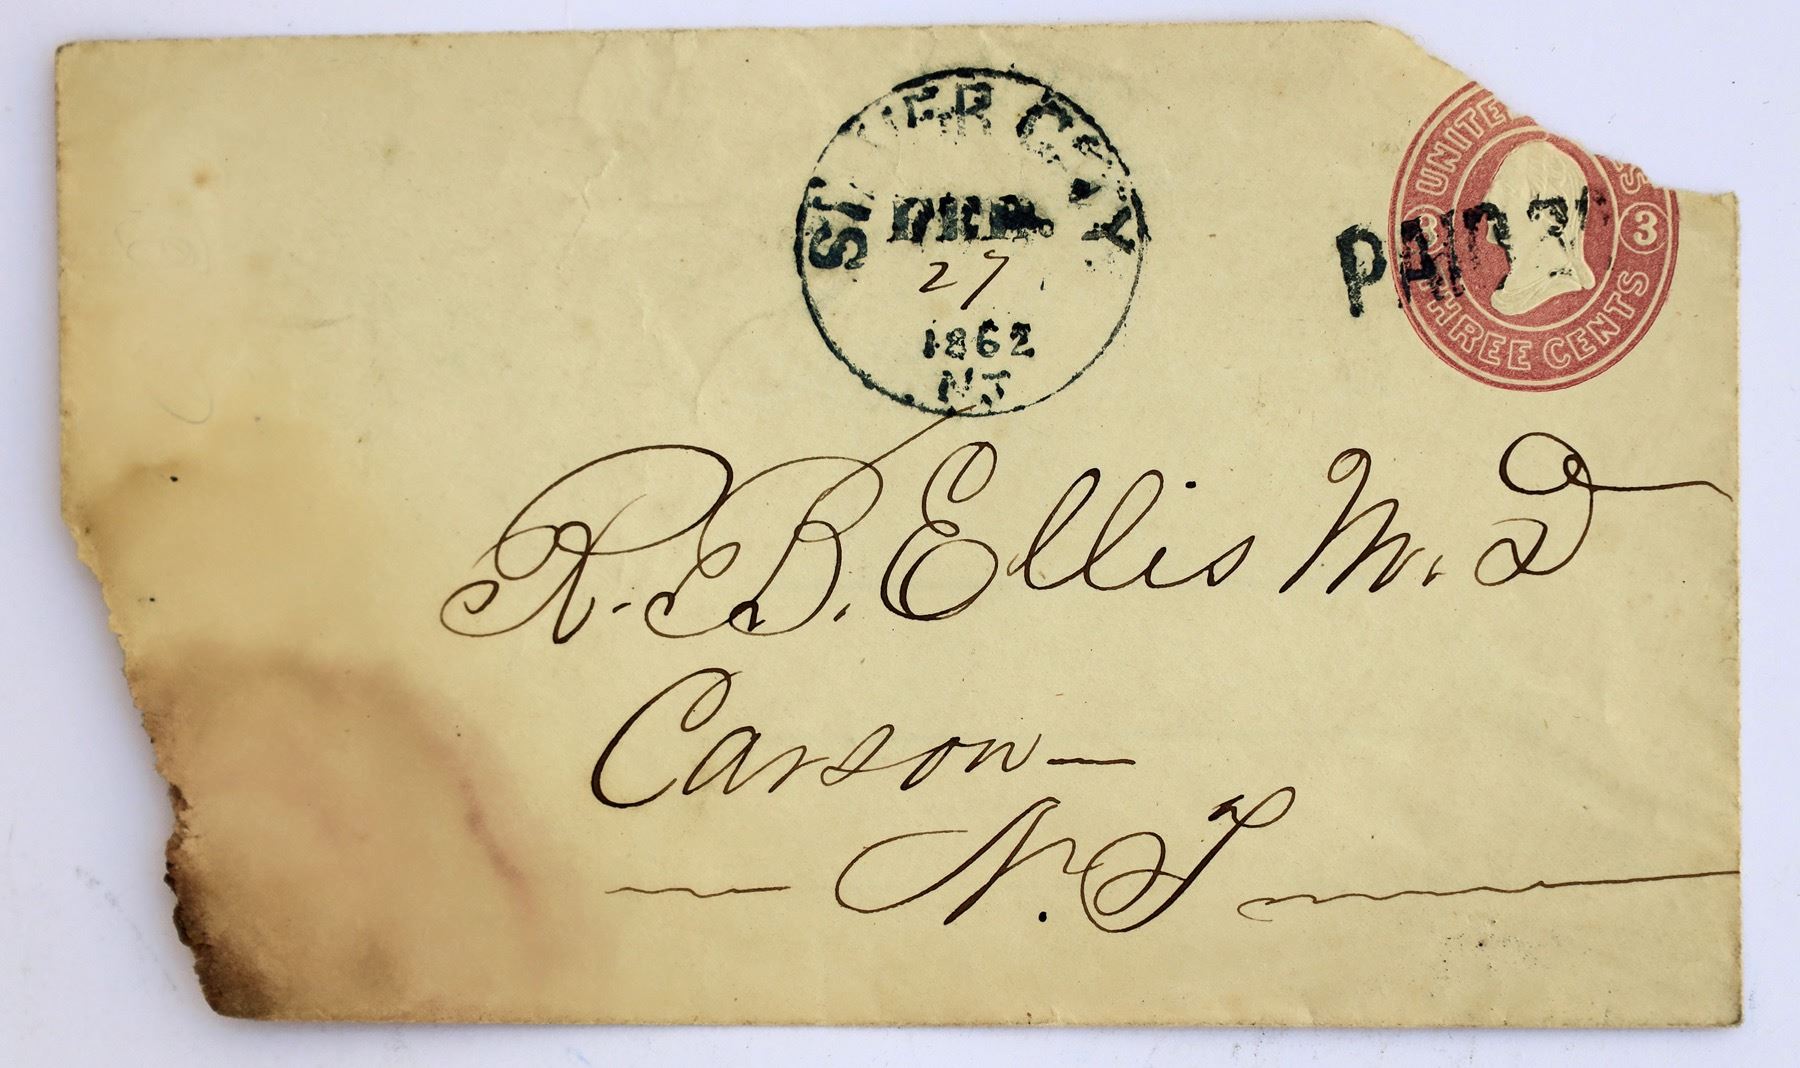 SILVER CITY
FEB.
27
1862
N.T
UNITED S
3 3
THREE CENTS
PAID 3
R. B. Ellis M. D
Carson—
N. T